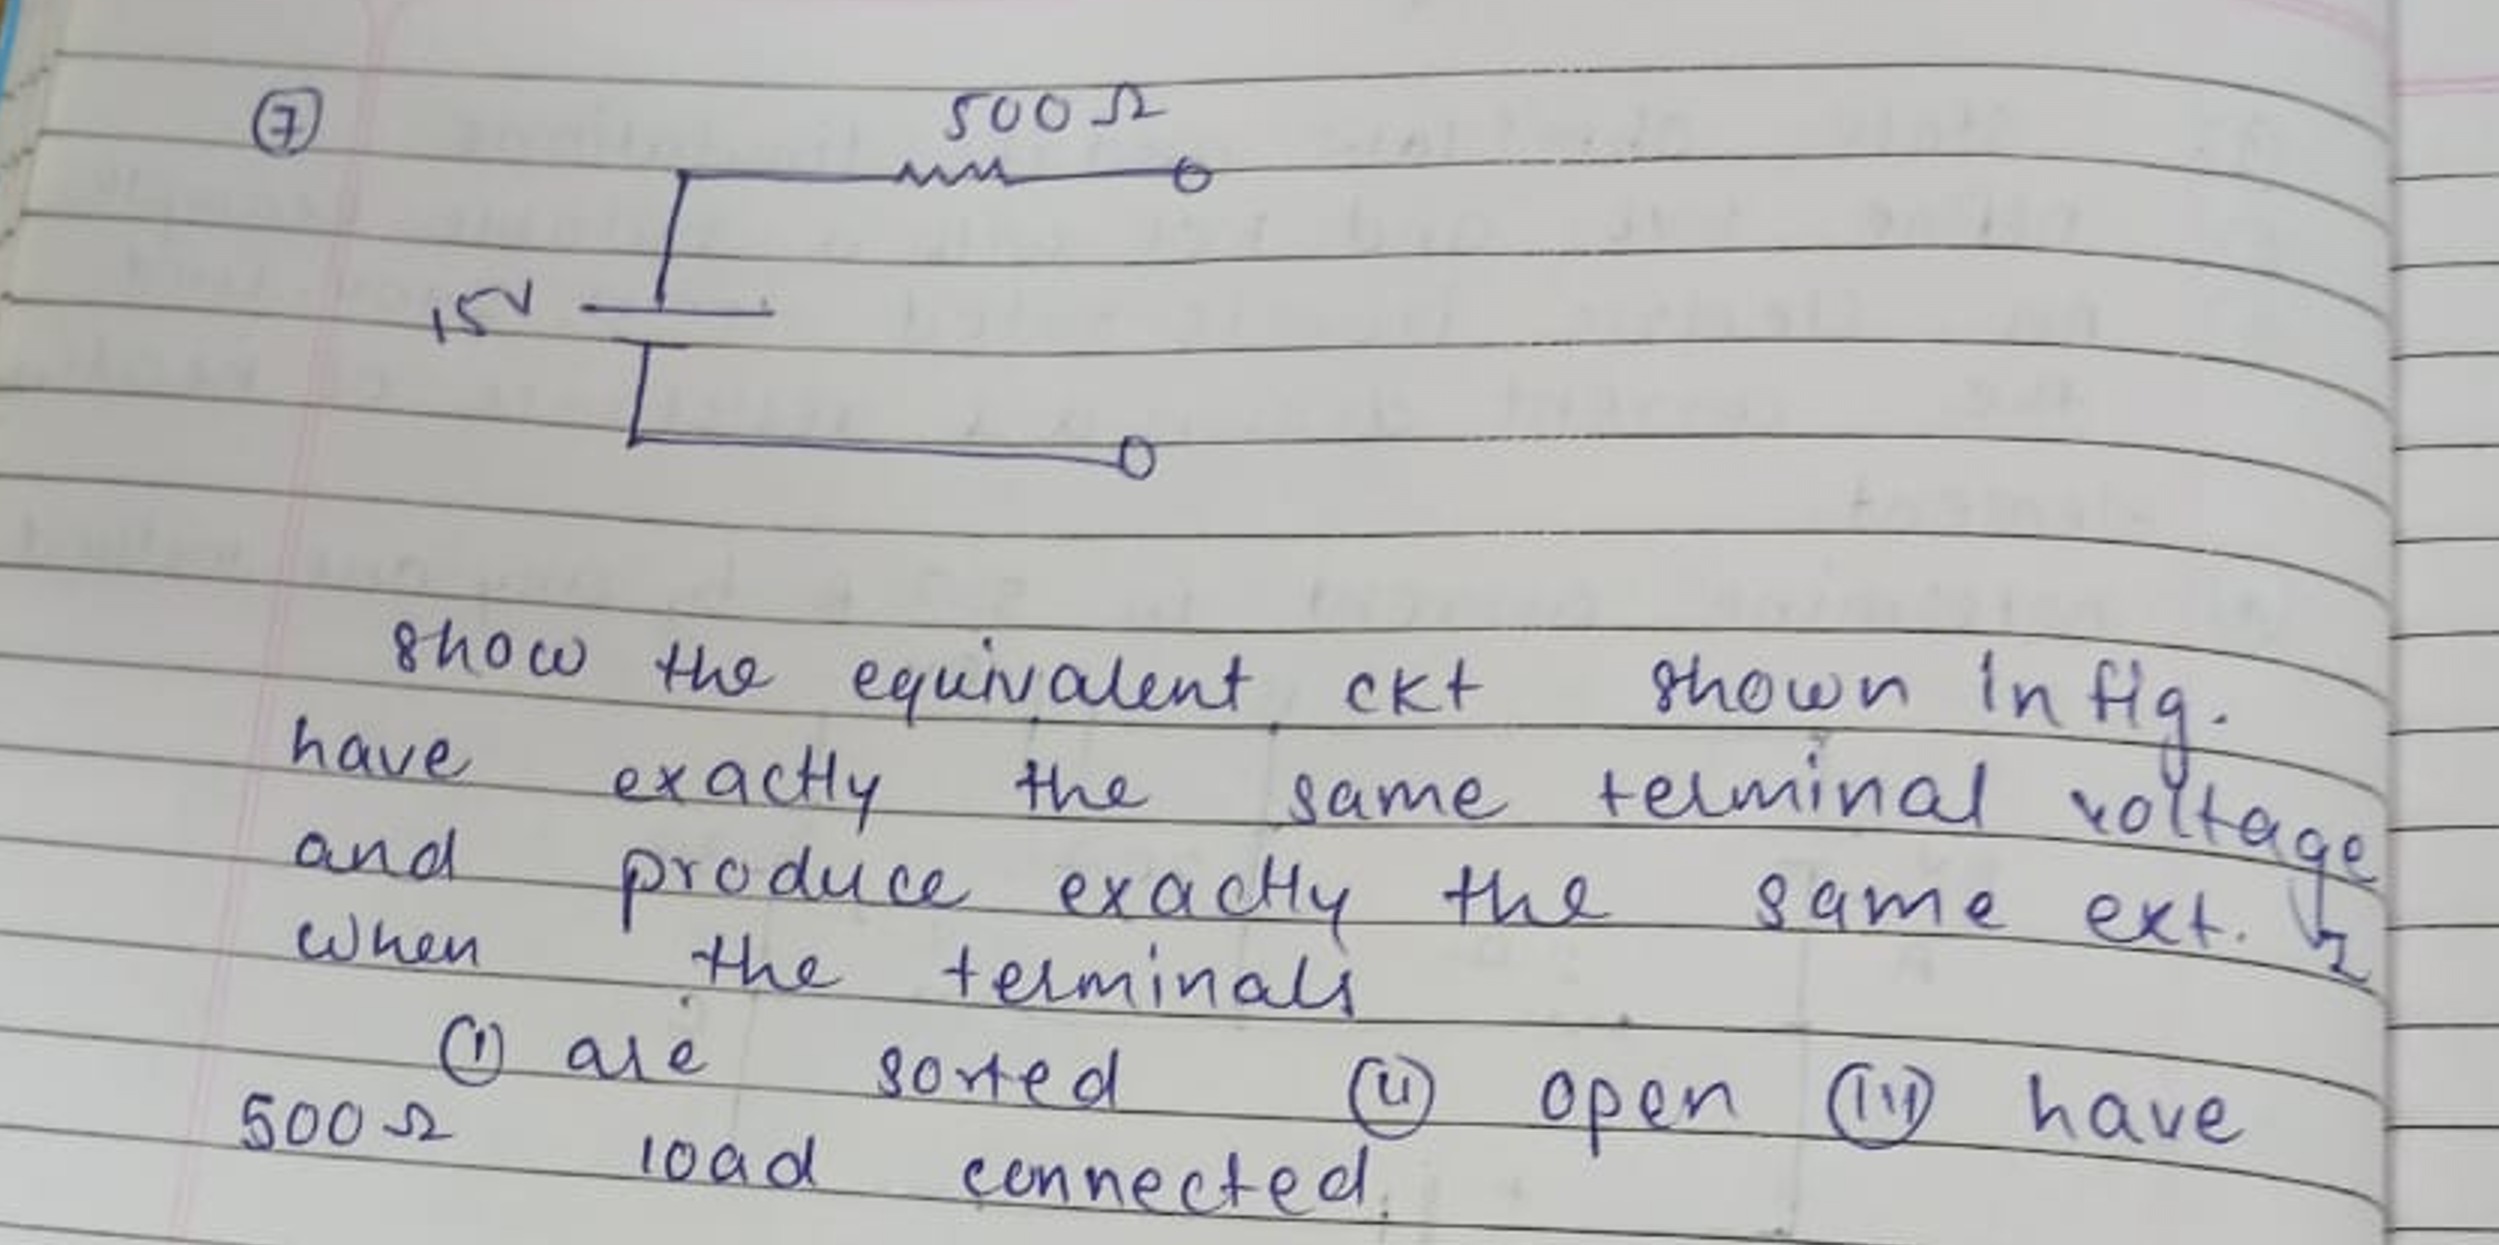 7
500 Ω
15V
show the equivalent ckt shown in fig.
have exactly the same terminal voltage
and produce exactly the same ext.
when the terminals
(i) are sorted (ii) open (iii) have
500 Ω load connected.